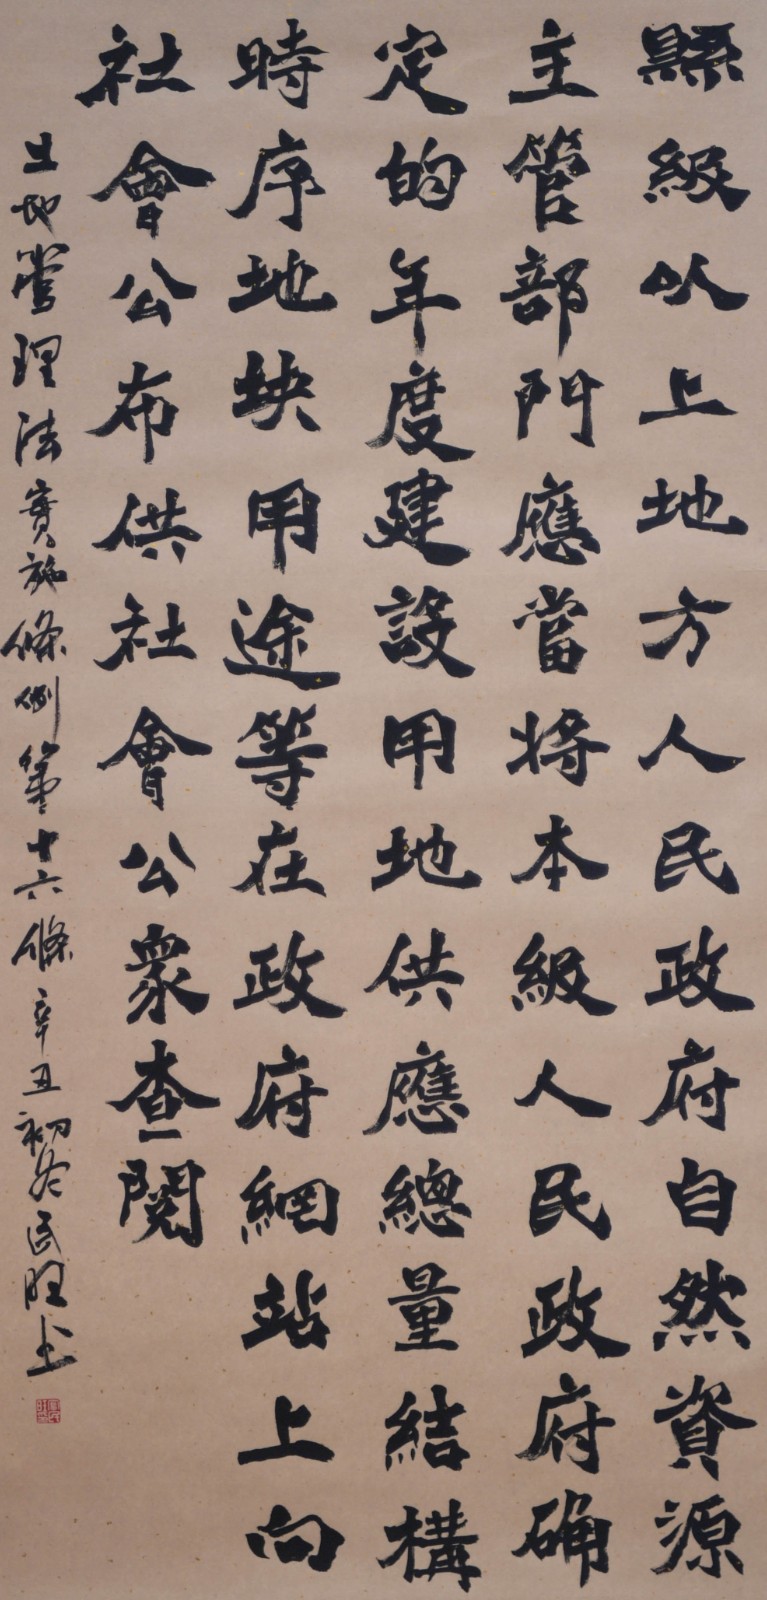 縣級以上地方人民政府自然資源
主管部門應當將本級人民政府确
定的年度建設用地供應總量結構
時序地块用途等在政府網站上向
社會公布供社會公眾查閱
土地管理法實施條例第十六條辛丑初冬民旺书